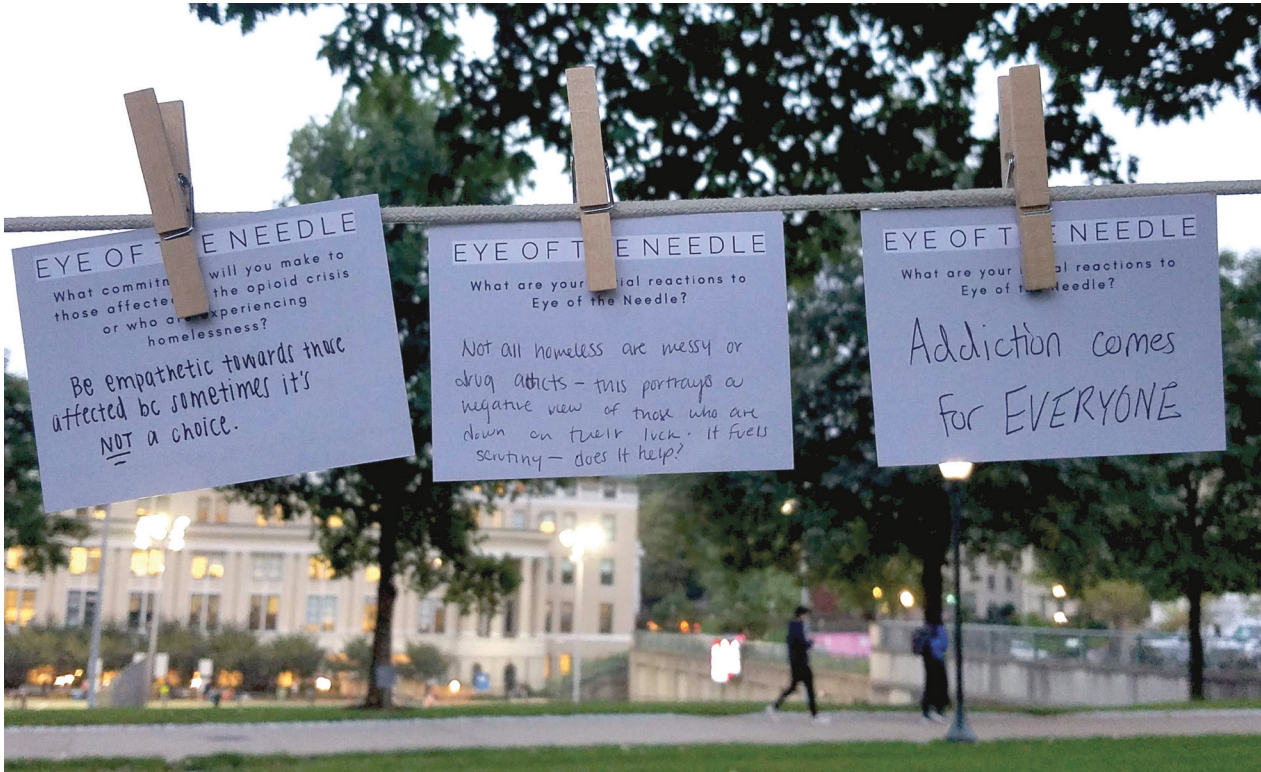 EYE OF THE NEEDLE
What will you make to
those affected the opioid crisis
or who are experiencing
homelessness?
Be empathetic towards those
affected bc sometimes it's
NOT a choice.
EYE OF THE NEEDLE
What are your reactions to
Eye of the Needle?
Not all homeless are messy or
drug addicts – this portrays a
negative view of those who are
down on their luck. It fuels
scrutiny – does it help?
EYE OF THE NEEDLE
What are your reactions to
Eye of the Needle?
Addiction comes
for EVERYONE